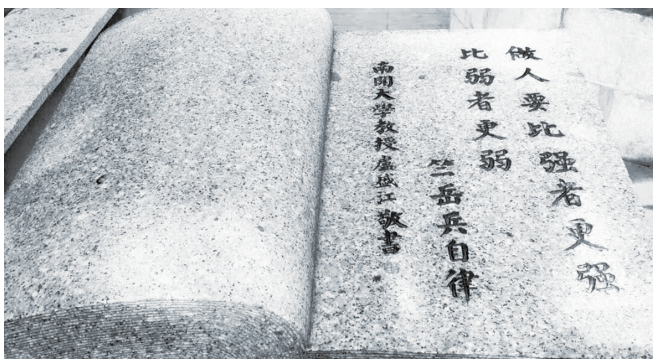 做人要比强者更强
比弱者更弱
竺岳兵自律
南開大學教授盧盛江敬書